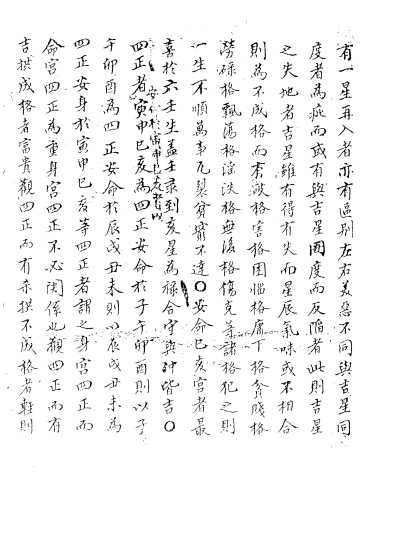 有一星再入者亦有區別左右美惡不同與吉星同
度者為疵而或有與吉星同度而反陷者此則吉星
之失地者吉星雖有得有失而星辰氣味或不相合
則為不成格而奔波格害格困惱格屬下格貧賤格
勞碌格飄蕩格淫泆格無後格傷克等諸格犯之則
一生不順萬事瓦裂貧窮不達○安命巳亥宮者最
喜於六壬生蓋壬彔到亥星為祿合守與冲皆吉○
四正者寅申巳亥為四正安命於子午卯酉則以子
安仁於寅申巳亥者以
午卯酉為四正安命於辰戌丑未則以辰戌丑未為
四正安身於寅申巳亥等四正者謂之身宮四正而
命宮四正為重身宮四正不必関係也觀四正而有
吉拱成格者富貴觀四正而有杀拱不成格者難則